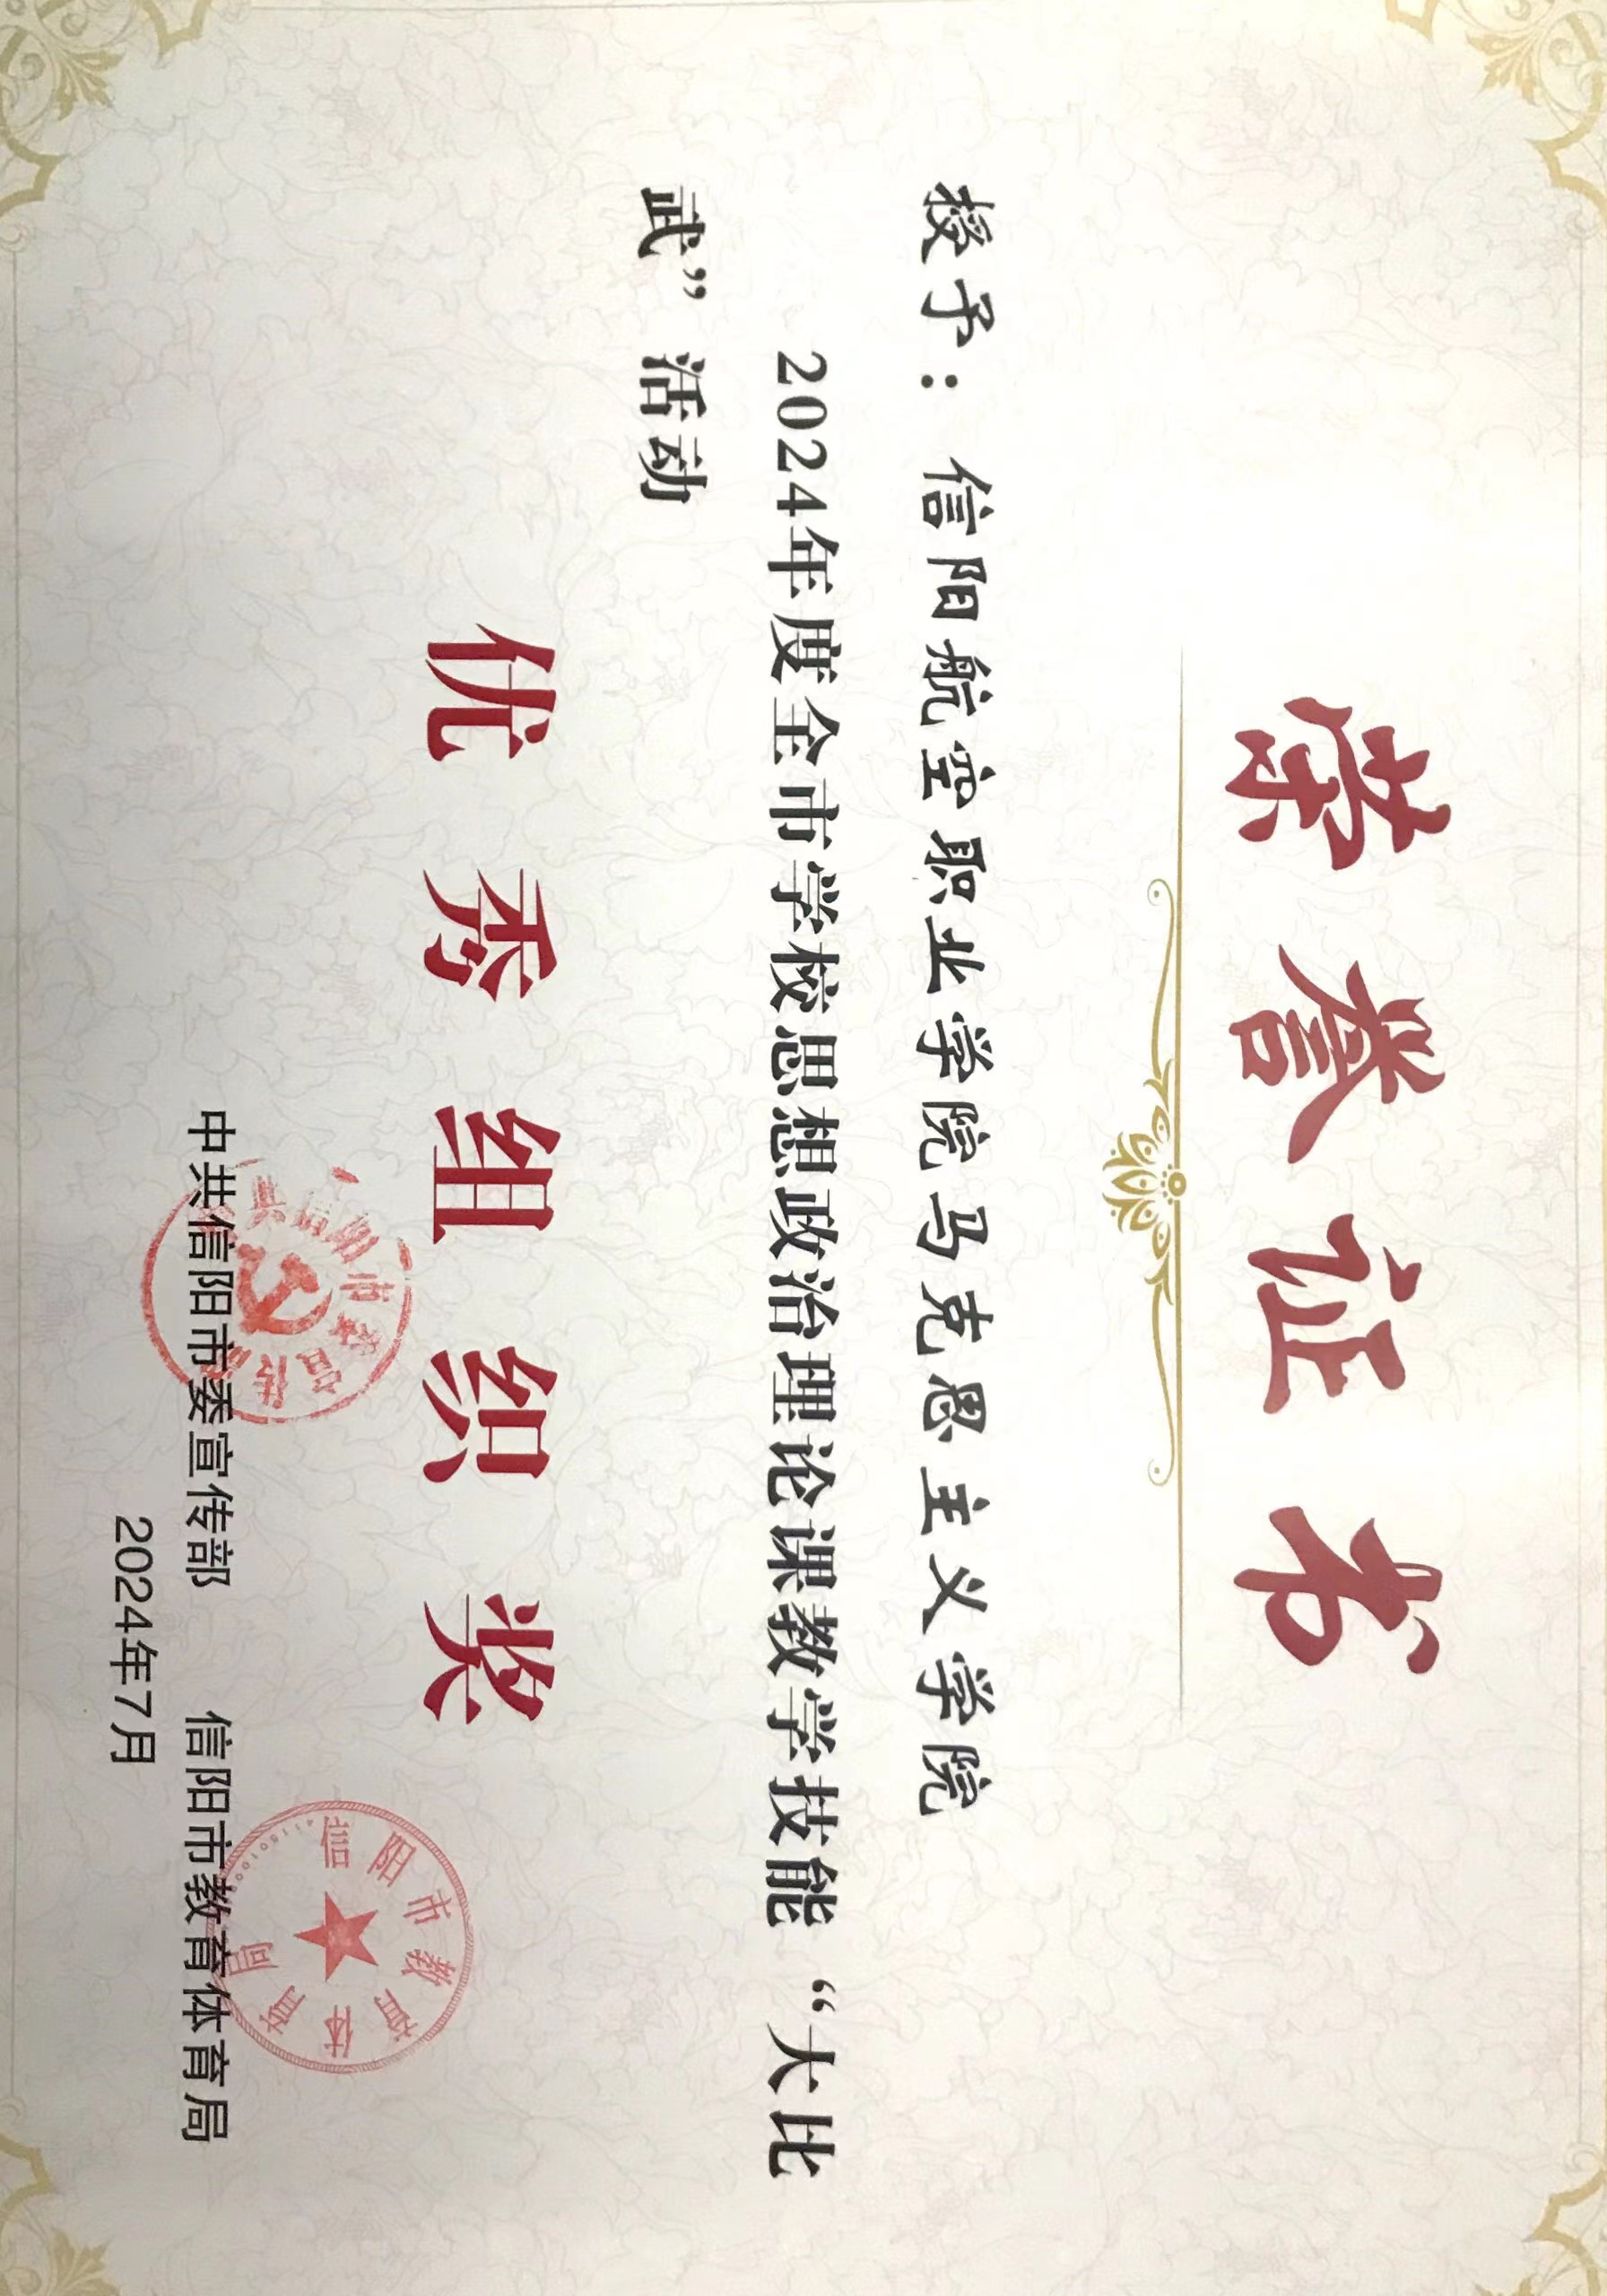 荣誉证书
授予：信阳航空职业学院马克思主义学院
2024年度全市学校思想政治理论课教学技能“大比
武”活动
优秀组织奖
中共信阳市委宣传部 信阳市教育体育局
2024年7月
信阳市教育体育局